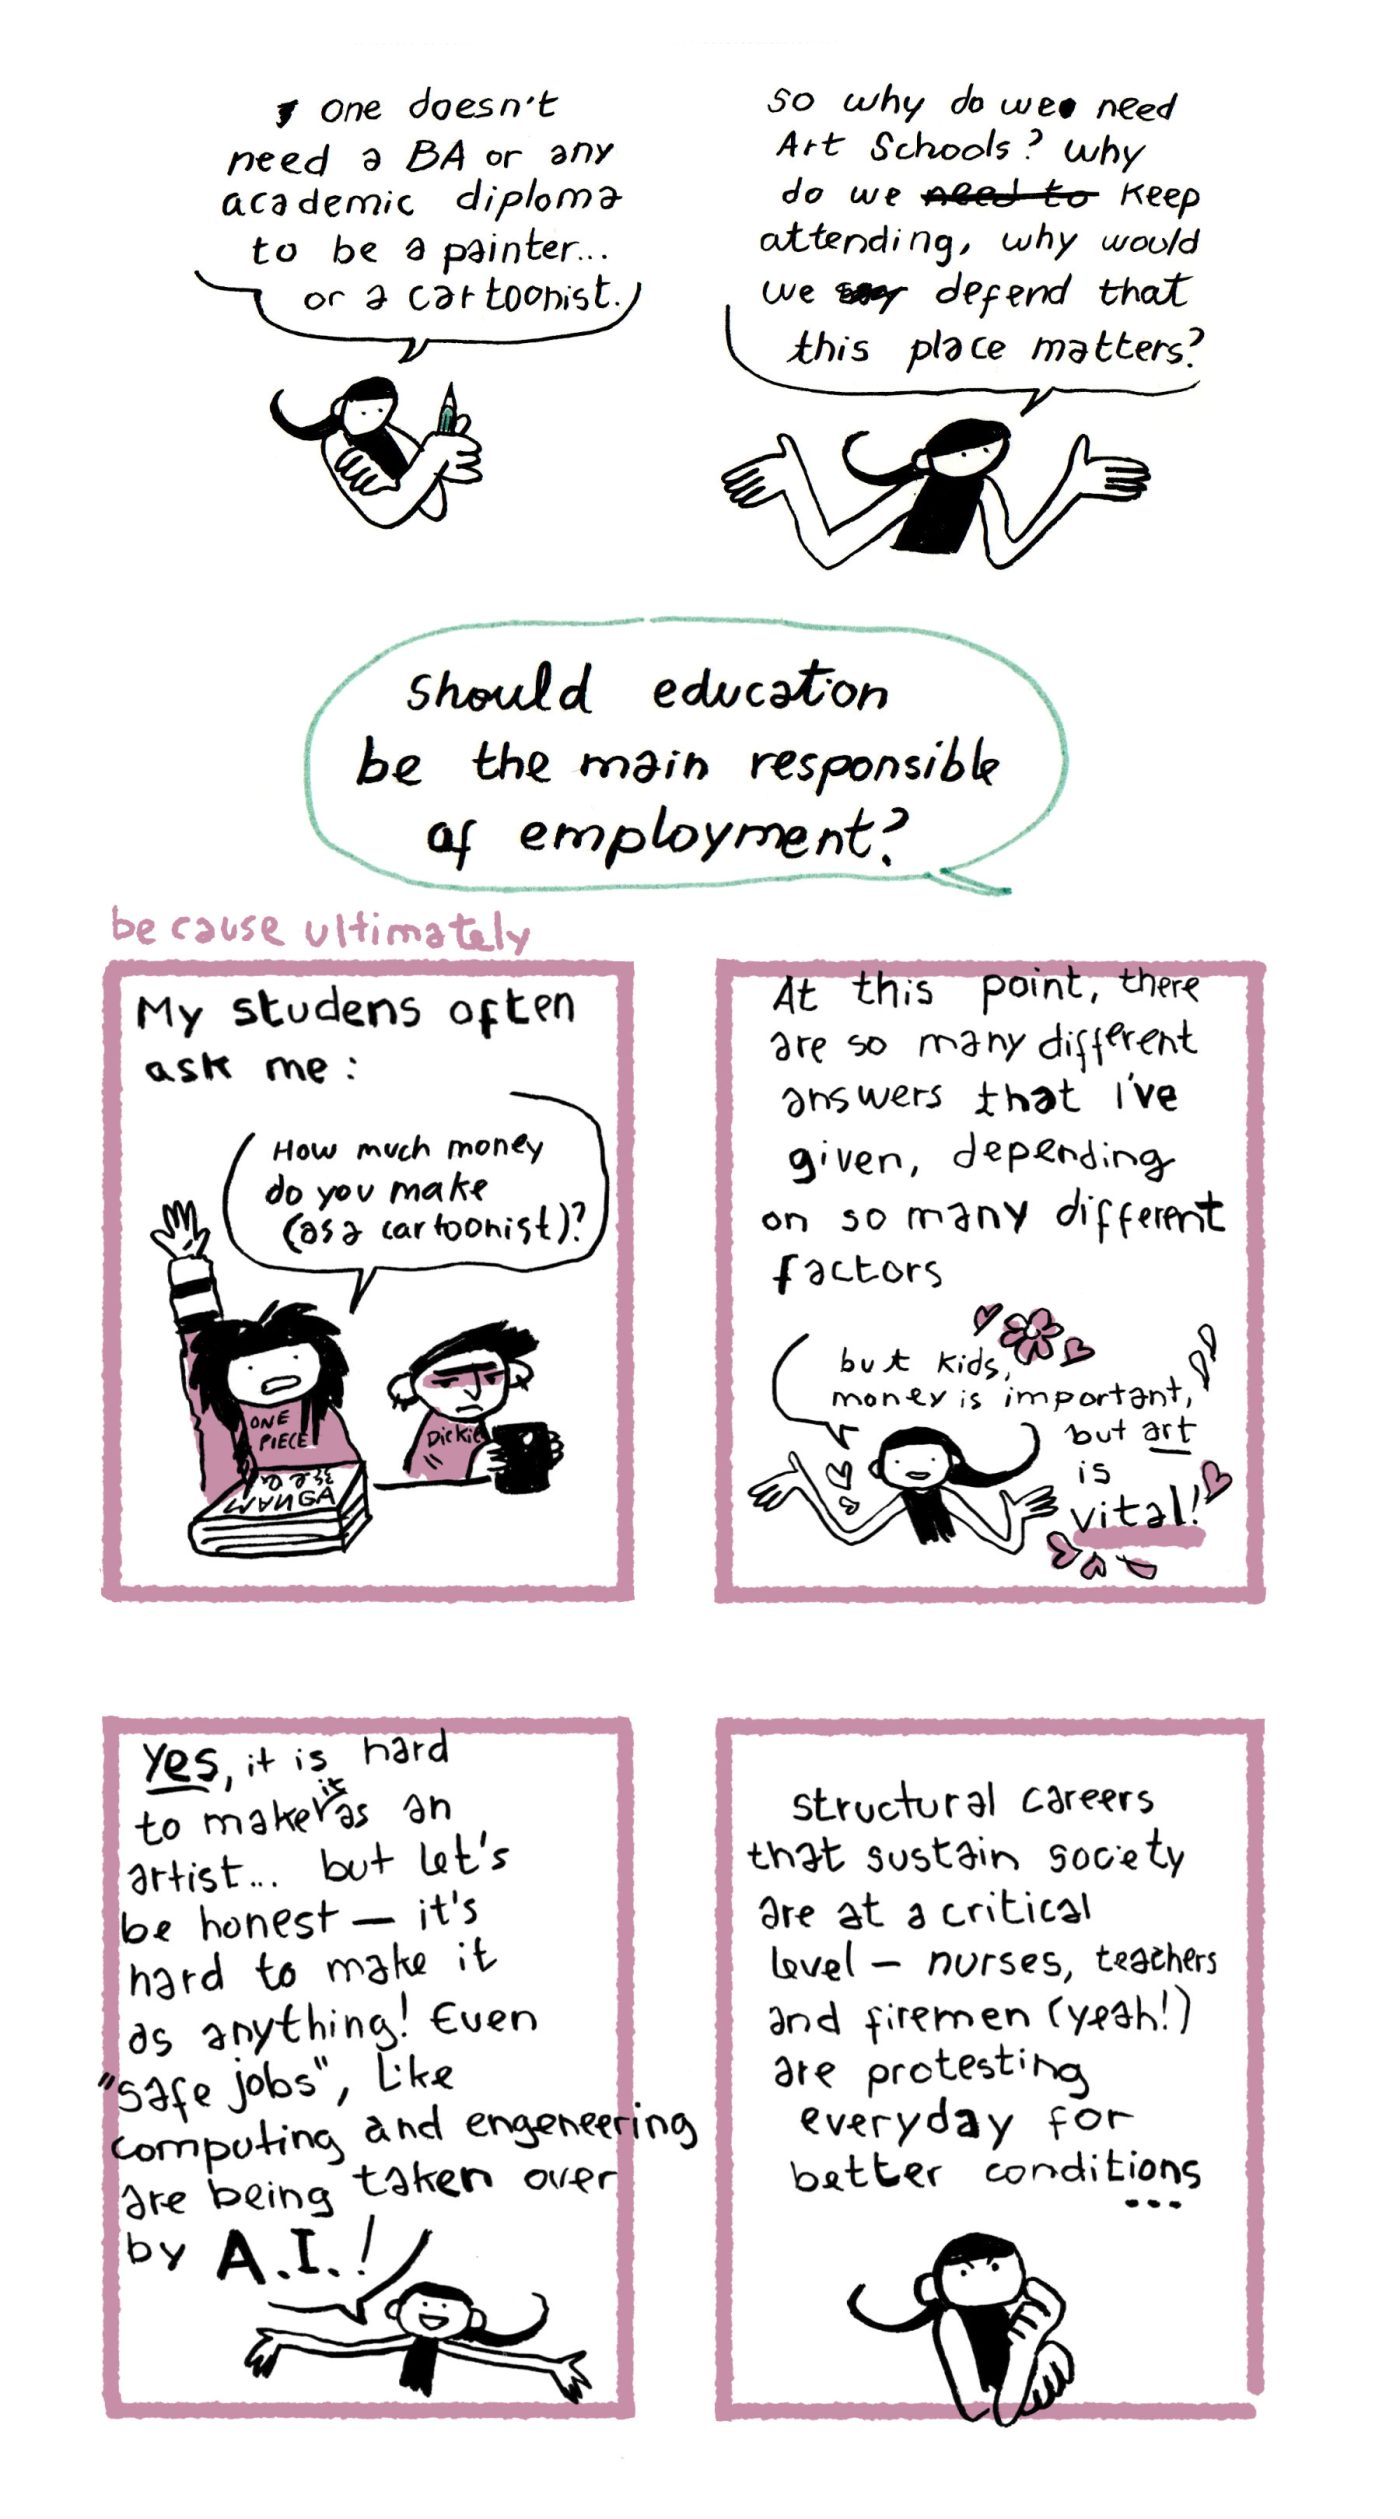 one doesn't
need a BA or any
academic diploma
to be a painter...
or a cartoonist.
so why do we need
Art Schools? why
do we need to keep
attending, why would
we say defend that
this place matters?
should education
be the main responsible
of employment?
because ultimately
My studens often
ask me:
How much money
do you make
(as a cartoonist)?
ONE
PIECE
Dickie
MANGA
At this point, there
are so many different
answers that I've
given, depending
on so many different
factors
but kids,
money is important,
but art
is
vital!
Yes, it is hard
to make it as an
artist... but let's
be honest — it's
hard to make it
as anything! Even
"safe jobs", like
computing and engeneering
are being taken over
by A.I.!
structural careers
that sustain society
are at a critical
level — nurses, teachers
and firemen (yeah!)
are protesting
everyday for
better conditions
...